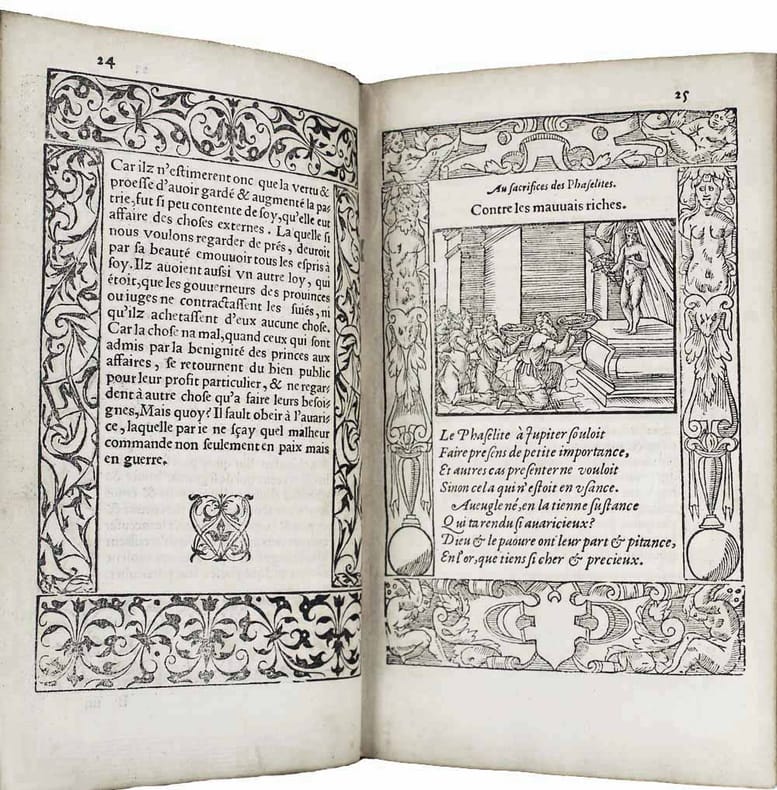 24
Car ilz n'estimerent onc que la vertu &
proesse d'auoir gardé & augmenté la pa-
trie, fut si peu contente de soy, qu'elle eut
affaire des choses externes. La quelle si
nous voulons regarder de prés, deuroit
par sa beauté emouuoir tous les espris à
soy. Ilz auoient aussi vn autre loy, qui
étoit, que les gouuerneurs des prouinces
ou iuges ne contractassent les suiés, ni
qu'ilz achetassent d'eux aucune chose.
Car la chose na mal, quand ceux qui sont
admis par la benignité des princes aux
affaires, se retournent du bien public
pour leur profit particulier, & ne regar-
dent à autre chose qu'a faire leurs besoi-
gnes, Mais quoy? Il fault obeir à l'auari-
ce, laquelle par ie ne sçay quel malheur
commande non seulement en paix mais
en guerre.
25
Au sacrifices des Phaselites.
Contre les mauuais riches.
Le Phaselite à Jupiter souloit
Faire presens de petite importance,
Et autres cas presenter ne vouloit
Sinon cela qui n'estoit en vsance.
Aueugle né, en la tienne sustance
Qui ta rendu si auaricieux?
Dieu & le paoure ont leur part & pitance,
En l'or, que tiens si cher & precieux.